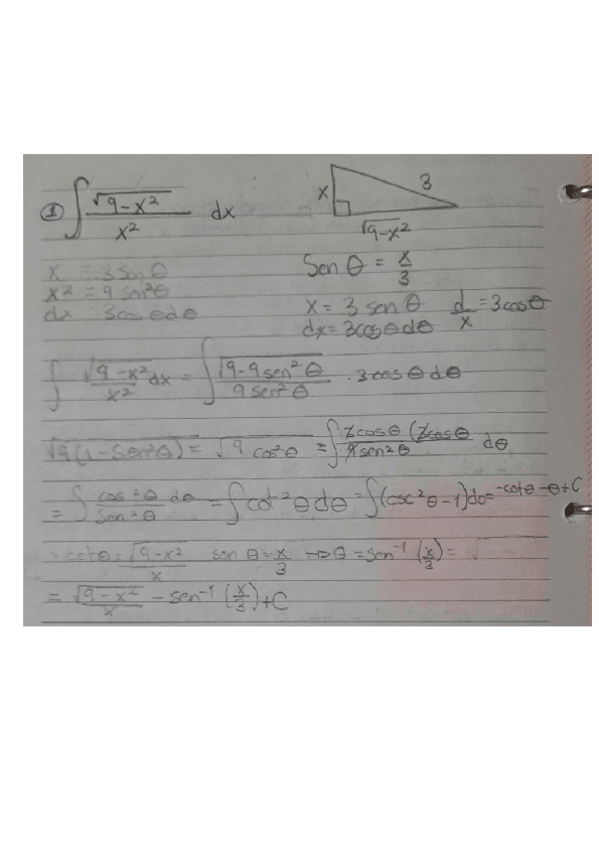 ① ∫ √9-x² / x² dx
x 3 √9-x²
Sen θ = x/3
x = 3 senθ
x² = 9 sen²θ
dx 3cosθdθ
x = 3 sen θ d/x = 3cosθ
dx = 3cosθdθ
∫ √9-x²/x² dx = ∫ √9-9sen²θ / 9sen²θ · 3cosθdθ
√9(1-Sen²θ) = √9cos²θ = ∫ 3cosθ (3cosθ / 9sen²θ dθ
= ∫ cos²θ dθ / Sen²θ = ∫cot²θdθ = ∫(csc²θ-1)dθ = -cotθ-θ+C
= cotθ = √9-x² / x sen θ = x/3 → θ = sen⁻¹ (x/3) = √
= √9-x² / x - sen⁻¹ (x/3) + C